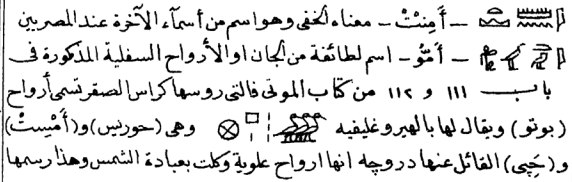 – أَمِنتْ – معناه الخفى وهو اسم من أسمآء الآخرة عند المصريين
– أمّو – اسم لطائفة من الجان او الأرواح السفلية المذكورة فى
باب ١١١ و ١١٢ من كتاب الموتى فالتى روسها كراس الصقر تسمى أرواح
(بوتو) ويقال لها بالهيروغليفيه وهى (حورنيس) و(أَمْيِسْتْ)
و(حَپِى) القائل عنها دروجه انها ارواح علوية وكلت بعبادة الشمس وهذا رسمها